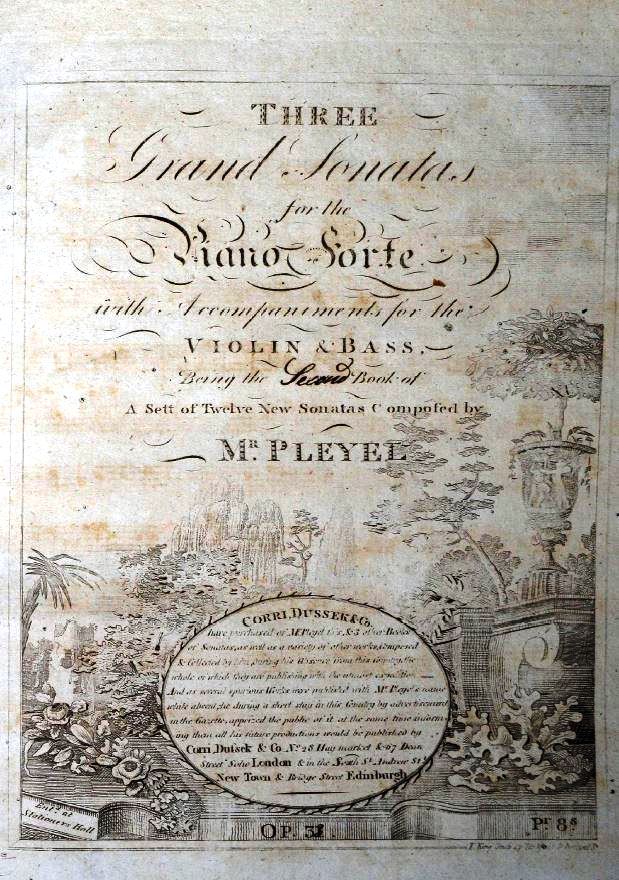 THREE
Grand Sonatas
for the
Piano Forte
with Accompaniments for the
VIOLIN & BASS,
Being the Second Book of
A Sett of Twelve New Sonatas Composed by
Mr. PLEYEL
CORRI, DUSSEK & Co.
have purchased of Mr. Pleyel this, & 3 other Books
of Sonatas, as well as a variety of other works, Composed
& Collected by him, during his absence from this country, the
whole of which they are publishing with the utmost expedition
And as several spurious Works were published with Mr. Pleyel's name
while abroad, he during a short stay in this Country by advertisement
in the Gazette, apprized the public of it at the same time inform
ing them all his future productions would be published by
Corri, Dussek & Co. No. 28 Hay market & 67 Dean
Street Soho London & in the South St. Andrew St.
New Town & Bridge Street Edinburgh
Ent. at
Stationers Hall
OP. 31
Pr. 8s